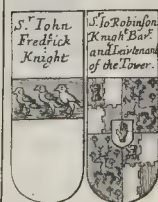 Sr. Iohn
Fredrick
Knight
Sr. Io Robinson
Knight Bar.
and Leivtenant
of the Tower.